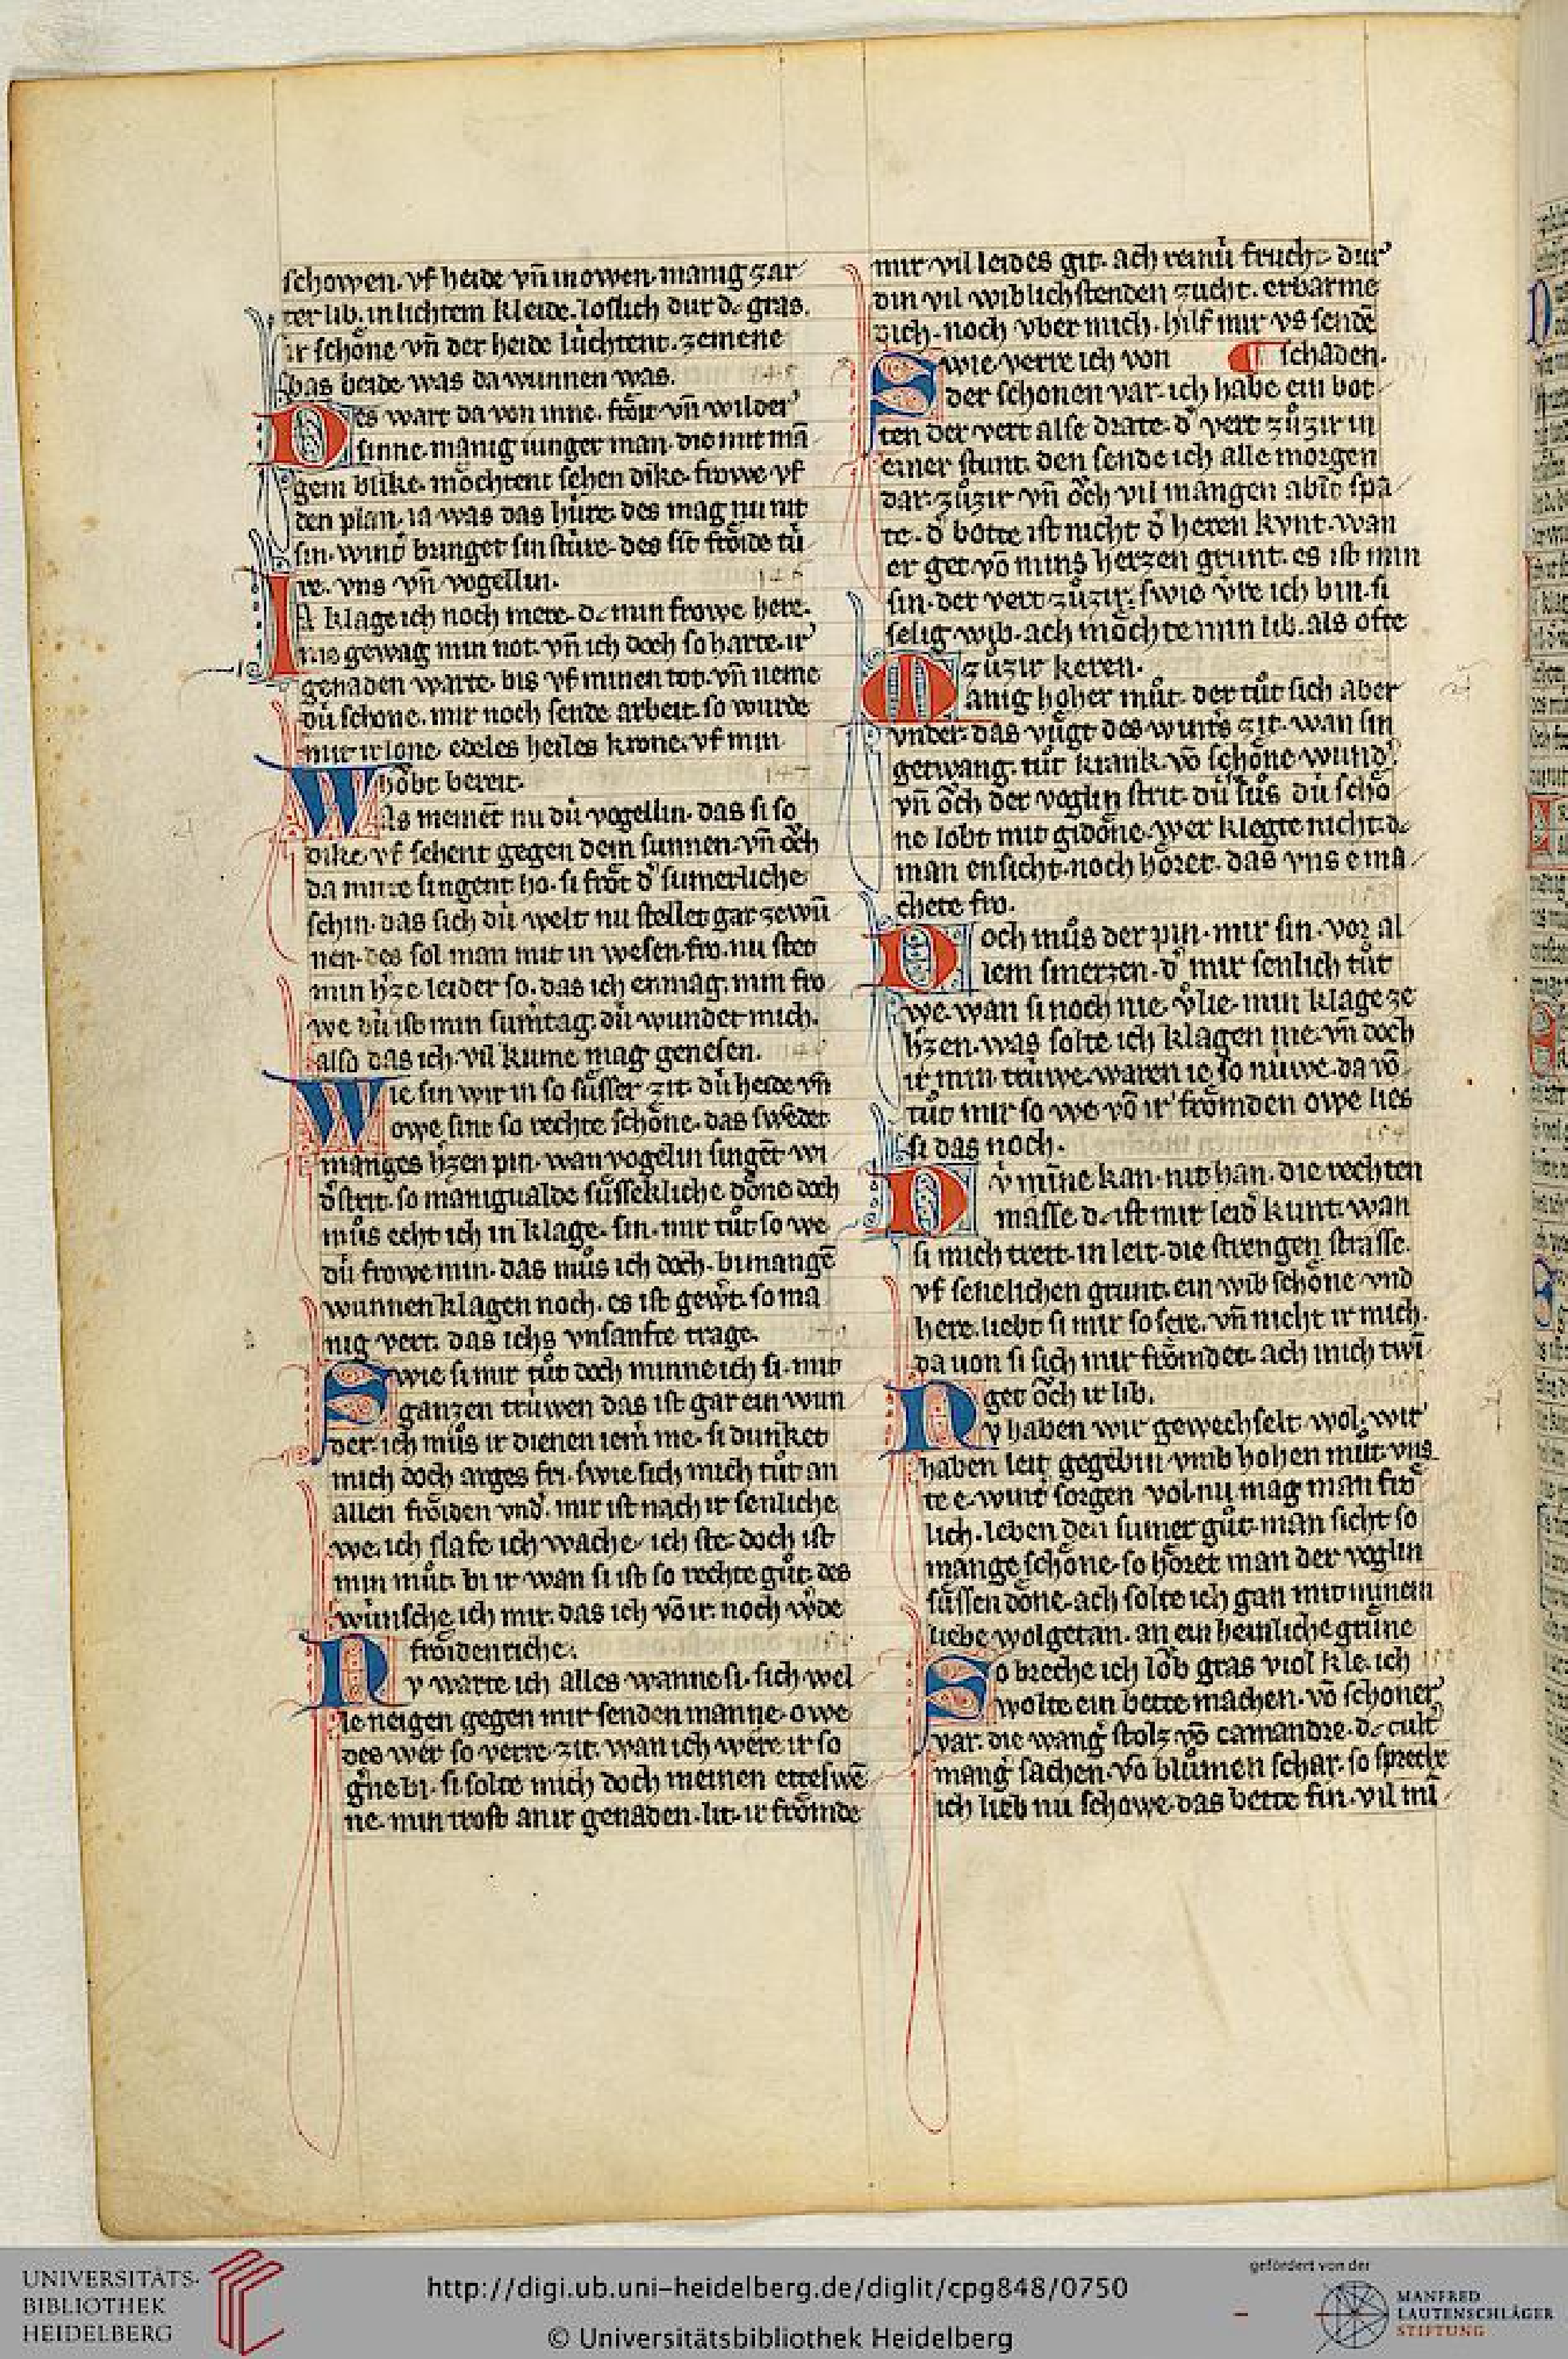 schowen. vf heide vn̄ in owen. manig zar
ter lib. in lichtem kleide. loslich dur dc gras.
ir schoͤne vn̄ der heide lúchtent. zemene
was beide was da wunnen was.
Des wart da von inne. froͤit vn̄ wilder
sinne. manig iunger man. die mit mā
gem blike. moͤchtent sehen dike. frowe vf
den plan. ia was das húre. des mag nu nit
sin. wint͛ bringet sin stúre. des sit froͤide tú
re. vns vn̄ vogellin.
Ia klage ich noch mere. dc min frowe here.
nis gewag min not. vn̄ ich doch so harte. ir
genaden warte. bis vf minen tot. vn̄ neme
dú schone. mir noch sende arbeit. so wurde
mir ir lone. edeles heiles krone. vf min
hoͮbt bereit.
Was meinēt nu dú vogellin. das si so
dike. vf sehent gegen dem sunnen. vn̄ oͮch
da mitte singent ho. si froͤt d͛ sumerliche
schin. das sich dú welt nu stellet gar zewū
nen. des sol man mit in wesen. fro. nu stet
min h͛ze leider so. das ich enmag. min fro
we dú ist min sum͛tag. dú wundet mich.
also das ich. vil kume mag genesen.
Wie sin wir in so suͤsser zit. dú heide vn̄
owe sint so rechte schoͤne. das swēdet
manges h͛zen pin. wan vogelin singēt wi
d͛ strit. so manigualde suͤssekliche doͤne doch
muͦs echt ich in klage. sin. mir tuͦt so we
dú frowe min. das muͦs ich doch. bi mangē
wunnen klagen noch. es ist gew͛t. so ma
nig vert. das ichs vnsanfte trage.
Swie si mir tuͦt doch minne ich si. mit
ganzen trúwen das ist gar ein wun
der. ich muͦs ir dienen iem͛ me. si dunket
mich doch arges fri. swie sich mich tuͦt an
allen froͤiden vnd͛. mir ist nach ir senliche
we. ich slafe ich wache. ich ste. doch ist
min muͦt. bi ir wan si ist so rechte guͦt. des
wúnsche ich mir. das ich vō ir. noch w͛de
froͤidenriche.
Nv warte ich alles wanne si. sich wel
le neigen gegen mir senden manne. owe
des wer so verre. zit. wan ich were ir so
g͛ne bi. si solte mich doch meinen etteswē
ne. min trost an ir genaden. lit. ir froͤmde
mir vil leides git. ach reinú frucht. dur
din vil wiblich stenden zucht. erbarme
dich. noch vber mich. hilf mir vs sendē
¶ schaden.
Swie verre ich von
der schonen var. ich habe ein bot
ten der vert alse drate. d͛ vert zuͦzir in
einer stunt. den sende ich alle morgen
dar. zuͦzir vn̄ oͮch vil mangen abīt spa
te. d͛ botte ist nicht d͛ heren kvnt. wan
er get vō mins herzen grunt. es ist min
sin. der vert zuͦzir. swie v͛re ich bin. si
selig wib. ach moͤchte min lib. als ofte
zuͦzir keren.
Manig hoher muͦt. der tuͦt sich aber
vnder. das vuͤgt des wint͛s zit. wan sin
getwang. tuͦt krank. vō schoͤne wund͛.
vn̄ oͮch der voglin strit. dú suͤs dú schoͤ
ne lobt mit gidoͤne. wer klegte nicht. dc
man ensicht. noch hoͤret. das vns e ma
chete fro.
Doch muͦs der pin. mir sin. vor al
lem smerzen. d͛ mir senlich tuͦt
we. wan si noch nie. v͛lie. min klage ze
h͛zen. was solte ich klagen me. vn̄ doch
ir min trúwe. waren ie so núwe. da vō
tuͦt mir so we vō ir froͤmden owe lies
si das noch.
Dv́ miñe kan. nit han. die rechten
masse dc ist mir leid͛ kunt. wan
si mich treit. in leit. die strengen strasse.
vf senelichen grunt. ein wib schoͤne vnd
here. liebt si mir so sere. vn̄ nicht ir mich.
da uon si sich mir froͤmdet. ach mich twī
get oͮch ir lib.
Nv haben wir gewechselt wol. wir
haben leit gegebin vmb hohen muͦt. vns
te e. wint͛ sorgen vol. nu mag man froͤ
lich. leben den sumer guͦt. man sicht so
mange schoͤne. so hoͤret man der voglin
suͤssen doͤne. ach solte ich gan mit minem
liebe wolgetan. an ein heinliche gruͤne
So breche ich loͮb gras viol kle. ich
wolte ein bette machen. vō schoner
var. die wang͛ stolz vō camandre. dc cult͛
mang͛ sachen. vō bluͦmen schar. so spreche
ich lieb nu schowe. das bette fin. vil mī
UNIVERSITÄTS-
BIBLIOTHEK
HEIDELBERG
http://digi.ub.uni-heidelberg.de/diglit/cpg848/0750
© Universitätsbibliothek Heidelberg
gefördert von der
MANFRED
LAUTENSCHLÄGER
STIFTUNG